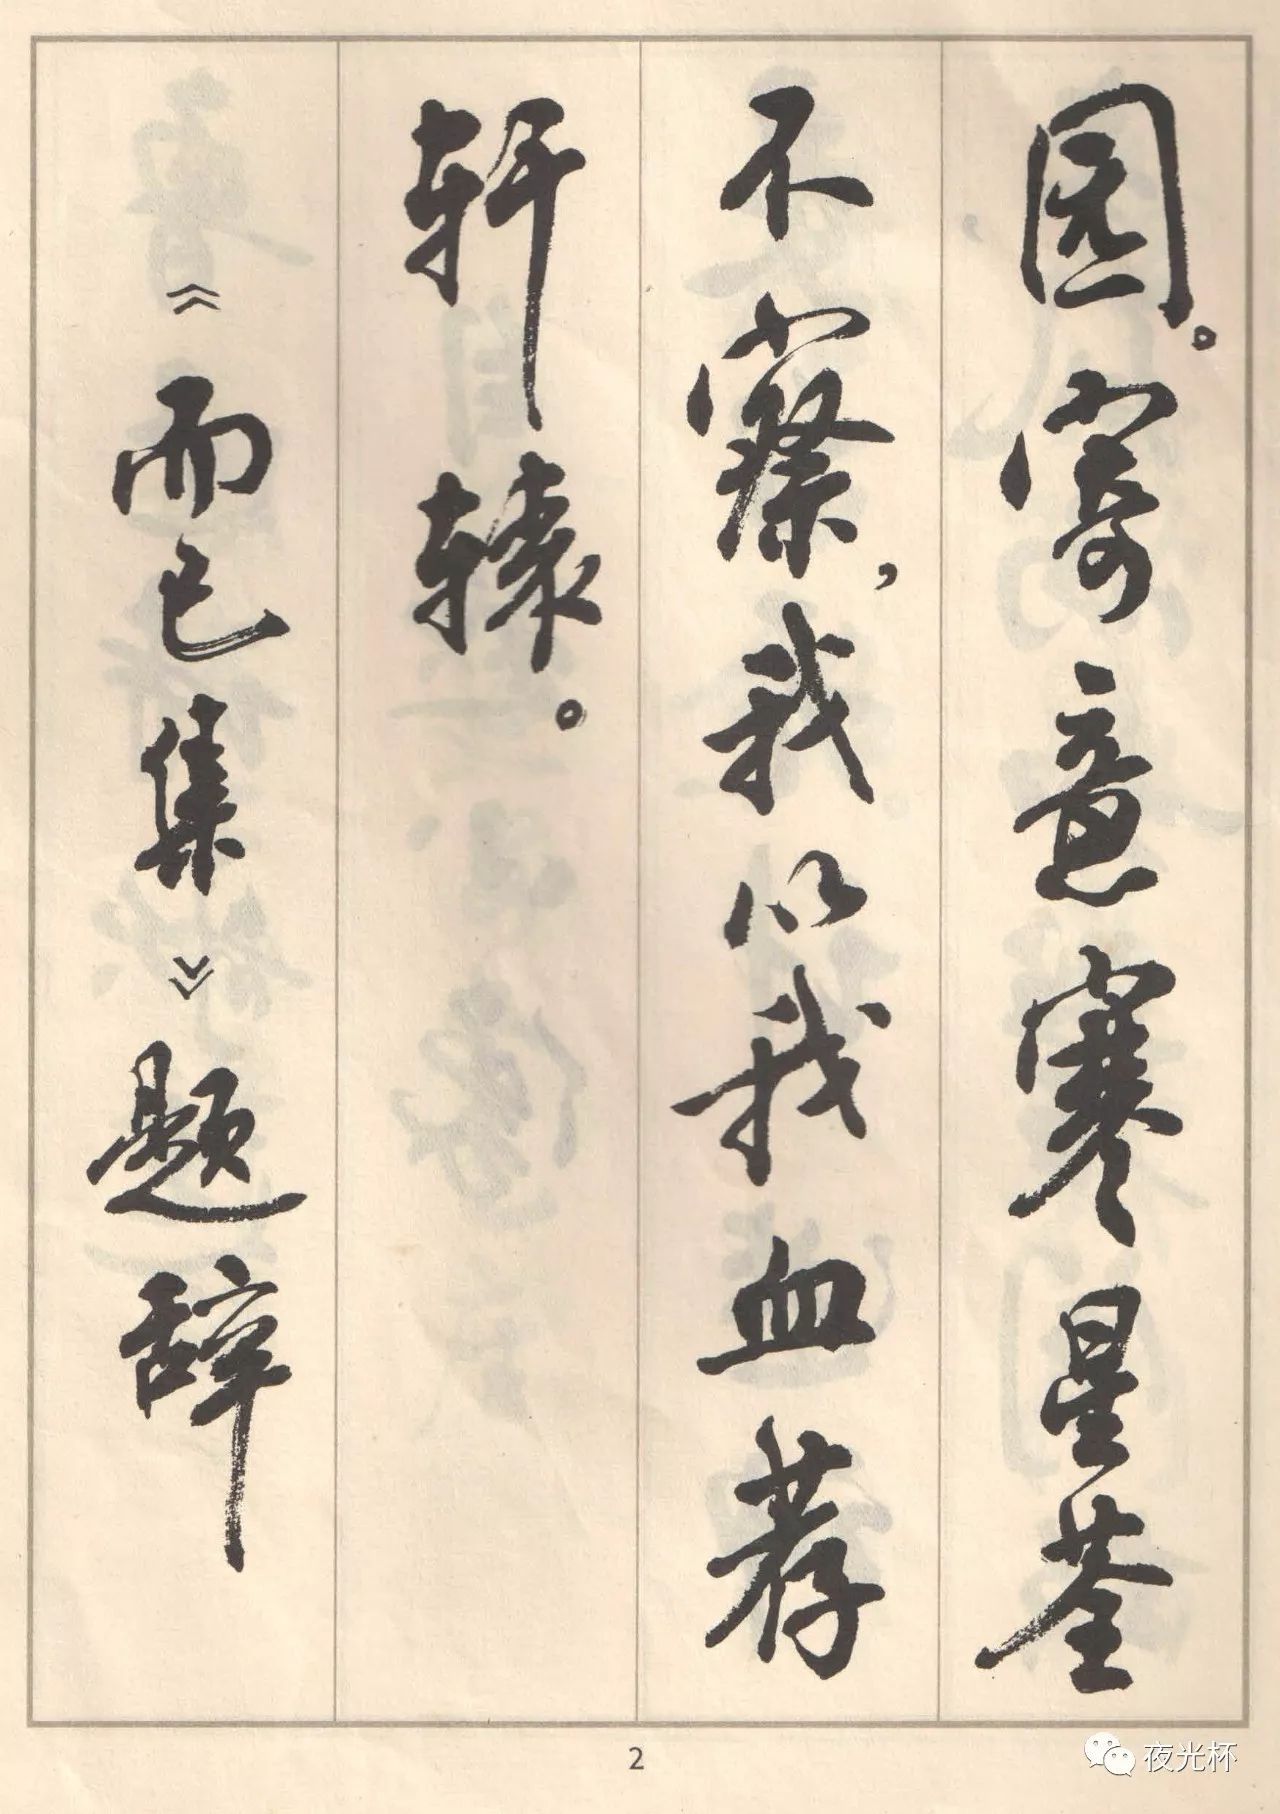 园。寄意寒星荃
不察，我以我血荐
轩辕。
《而已集》题辞
2
夜光杯